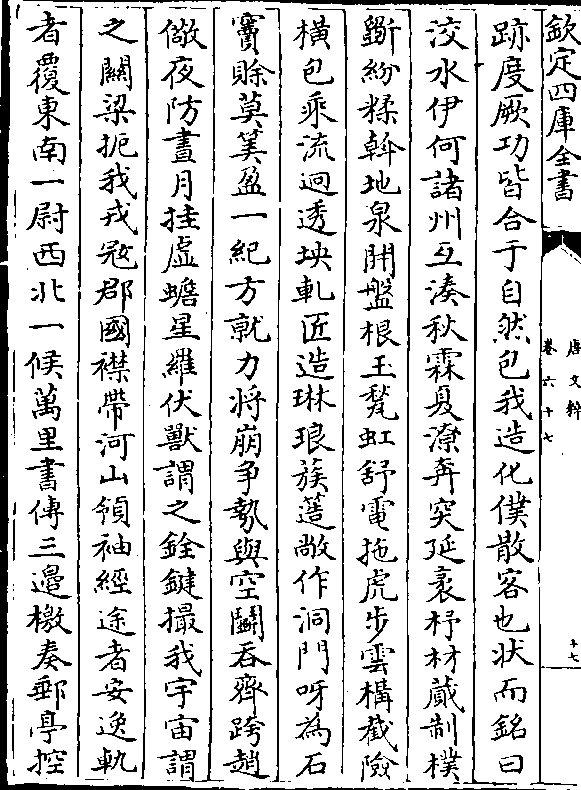 欽定四庫全書
唐文粹
卷六十七
十七
跡度厥功皆合于自然包我造化僕散客也状而銘曰
洨水伊何諸州互湊秋霖夏潦奔突延袤杼材蕆制樸
斵紛糅斡地泉開盤根玉甃虹舒電拖虎步雲構截險
橫包乘流迥透坱軋匠造琳琅蔟簉敞作洞門呀為石
竇賒莫筭盈一紀方就力将崩争勢與空鬬吞齊跨趙
儆夜防晝月挂虛蟾星羅伏獸謂之銓鍵撮我宇宙謂
之關梁扼我戎㓂郡國襟帶河山領袖經途者安逸軌
者覆東南一尉西北一候萬里書傳三邊檄奏郵亭控